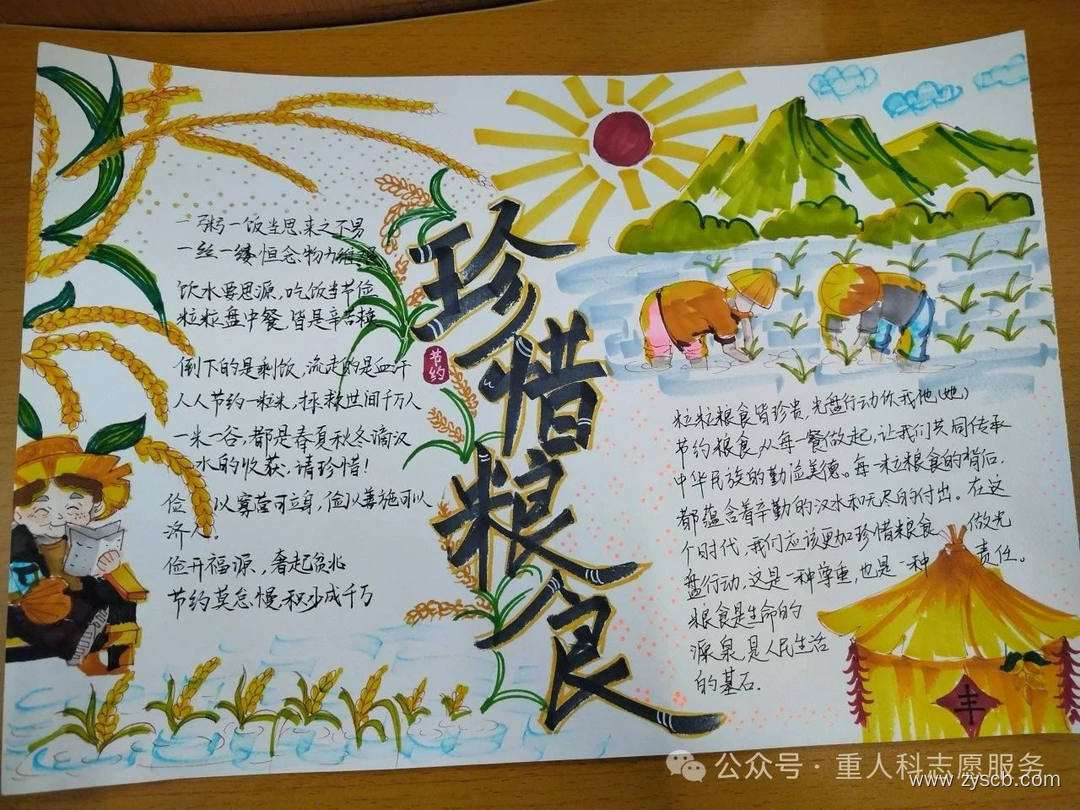 一粥一饭当思来之不易
一丝一缕恒念物力维艰
饮水要思源,吃饭当节俭
粒粒盘中餐,皆是辛苦换
倒下的是剩饭,流走的是血汗
人人节约一粒米,拯救世间千万人
一米一谷,都是春夏秋冬滴汉
水的收获,请珍惜!
俭 以寡营可立身,俭以善施可以
济人。
俭开福源,奢起贫兆
节约莫怠慢,积少成千万
珍惜粮食
节约
粒粒粮食皆珍贵,光盘行动你我他(她)
节约粮食,从每一餐做起,让我们共同传承
中华民族的勤俭美德。每一粒粮食的背后,
都蕴含着辛勤的汉水和无尽的付出。在这
个时代,我们应该更加珍惜粮食 做光
盘行动,这是一种尊重,也是一种 责任。
粮食是生命的
源泉,是人民生活
的基石.
丰
公众号·重人科志愿服务
www.zyscb.com